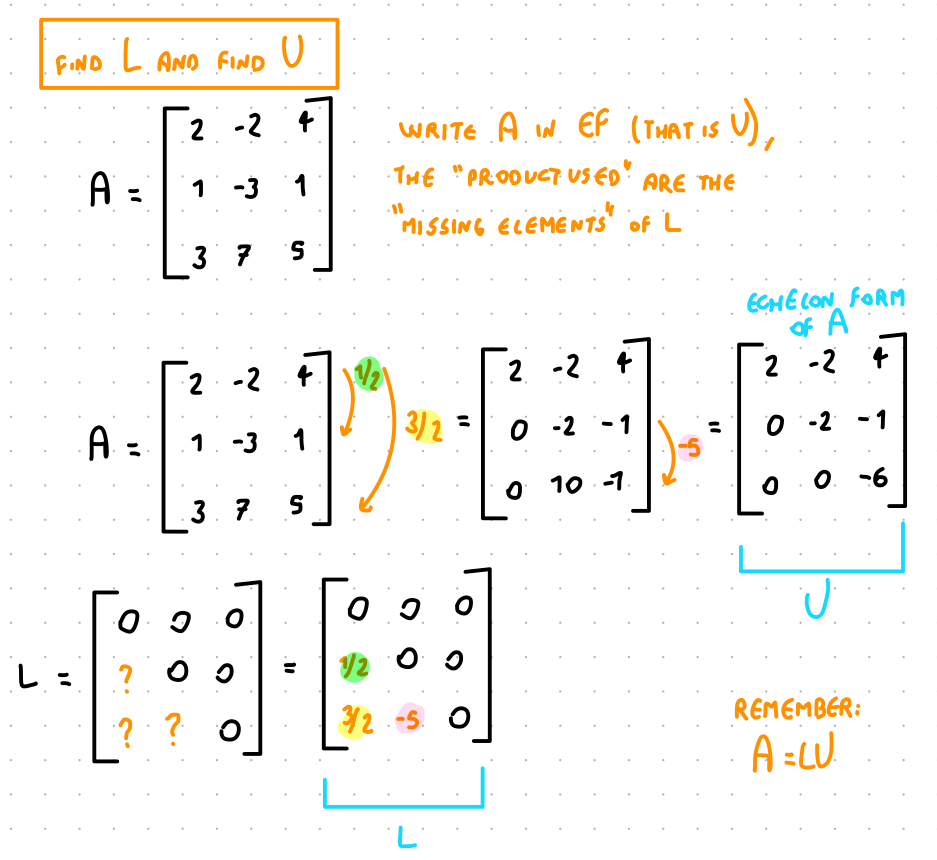 FIND L AND FIND U
A = [ 2 -2 4
1 -3 1
3 7 5 ]
WRITE A IN EF (THAT IS U),
THE "PRODUCT USED" ARE THE
"MISSING ELEMENTS" OF L
ECHELON FORM
OF A
A = [ 2 -2 4
1 -3 1
3 7 5 ]
1/2
3/2
= [ 2 -2 4
0 -2 -1
0 10 -1 ]
-5
= [ 2 -2 4
0 -2 -1
0 0 -6 ]
U
L = [ 0 0 0
? 0 0
? ? 0 ]
= [ 0 0 0
1/2 0 0
3/2 -5 0 ]
L
REMEMBER:
A = LU